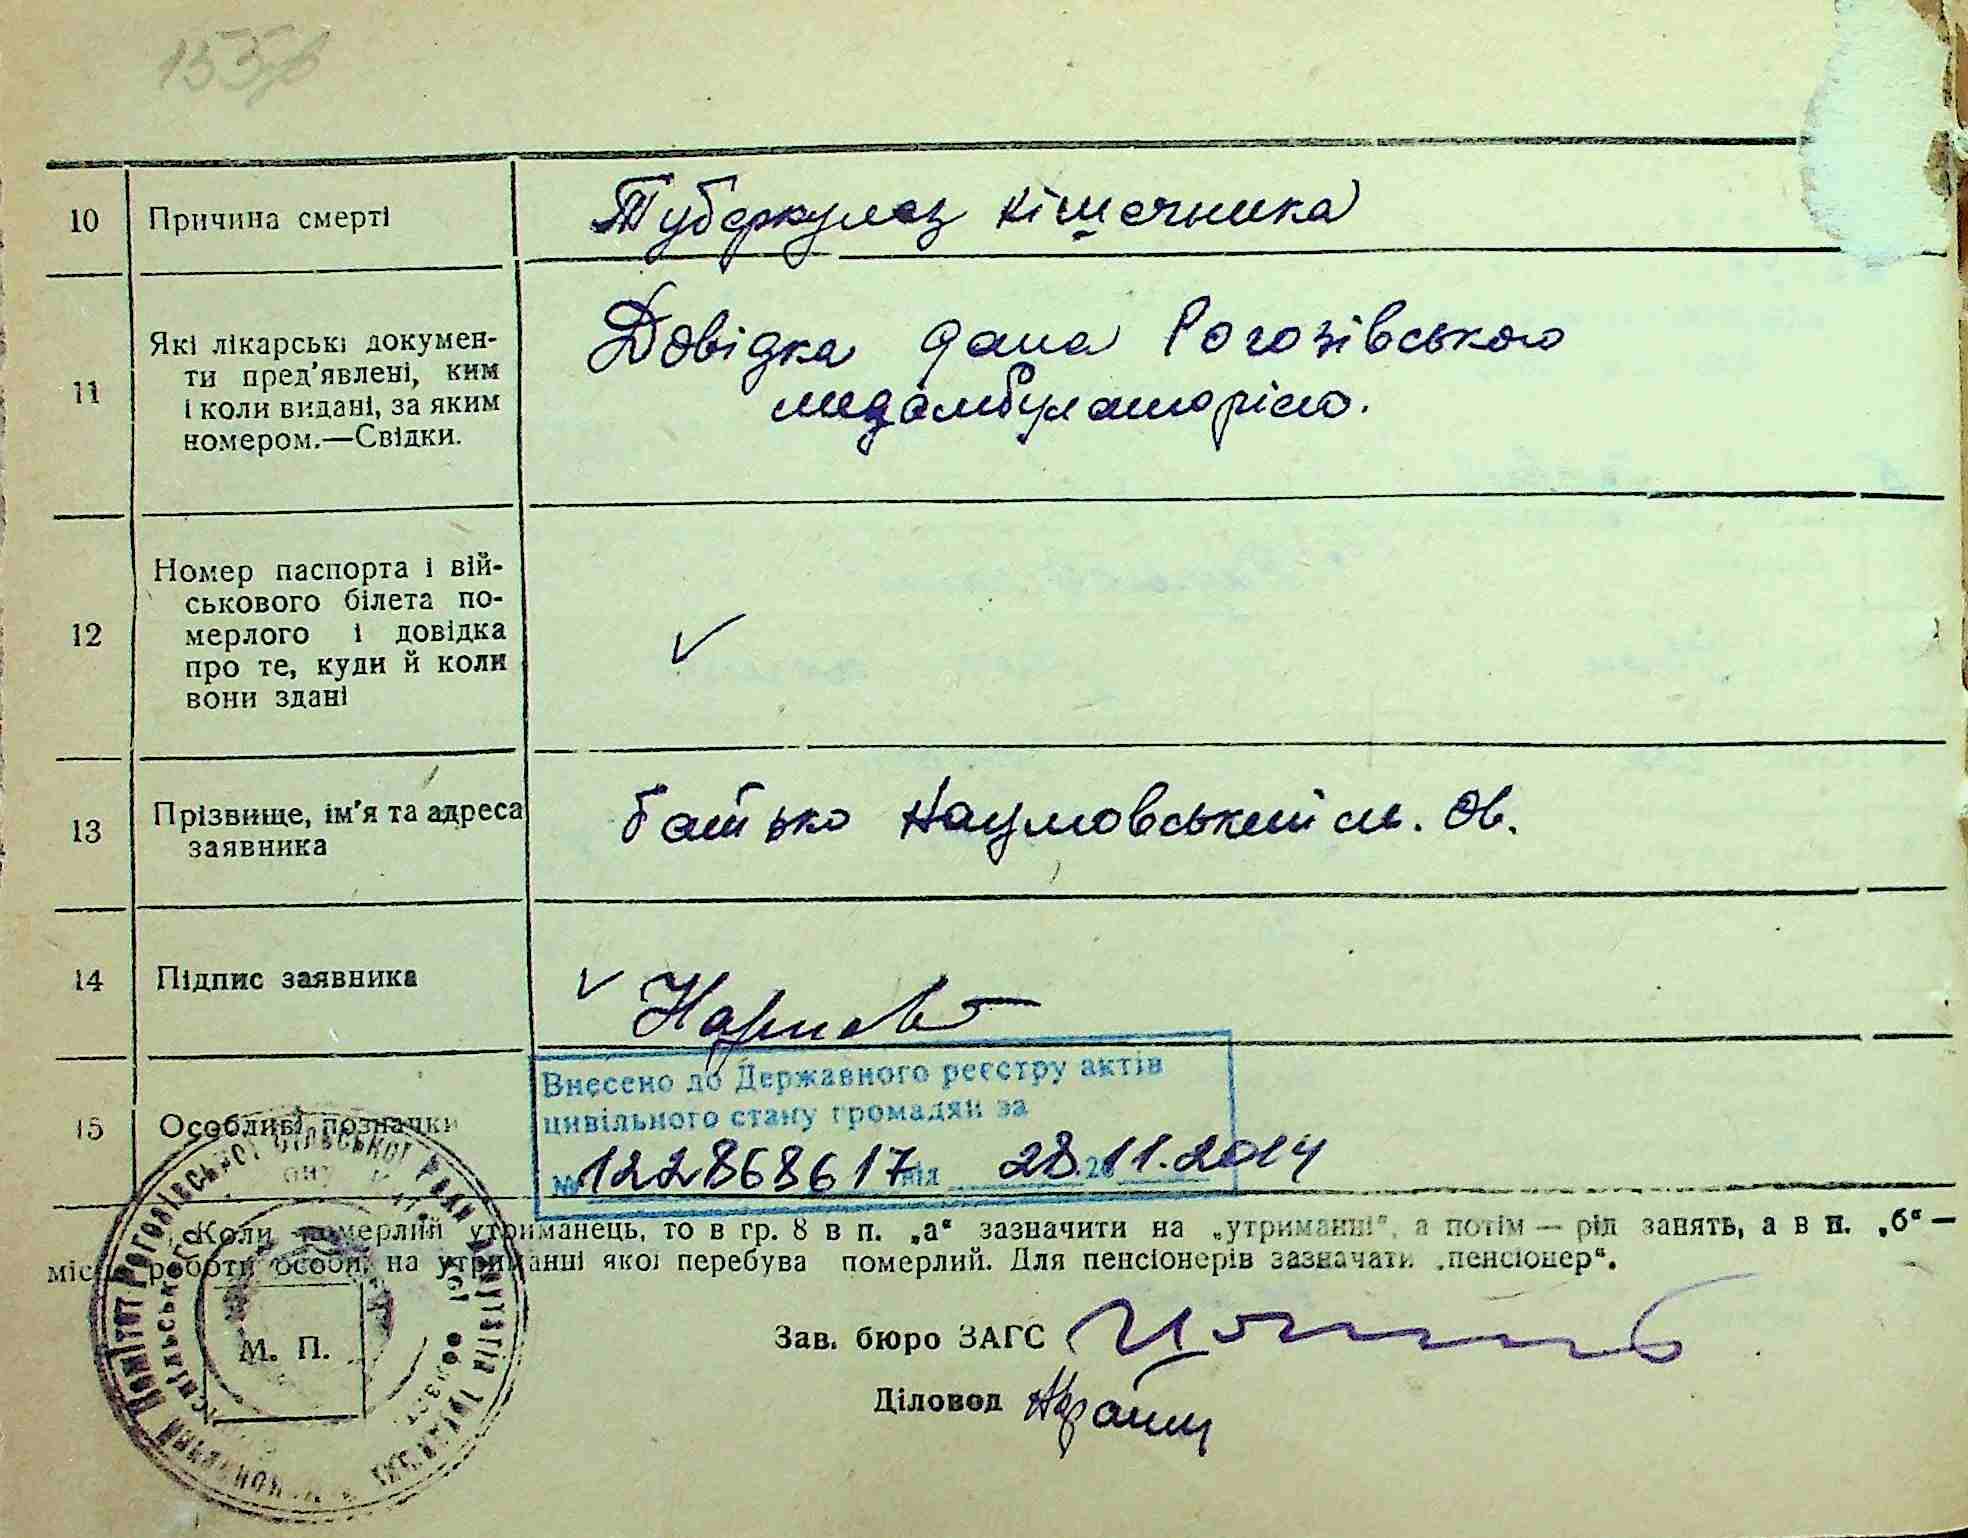 10 Причина смерті Туберкулез кішечника
11 Які лікарські докумен-
ти пред'явлені, ким
і коли видані, за яким
номером.—Свідки.
Довідка дана Рогозівською
медамбулаторією.
12 Номер паспорта і вій-
ськового білета по-
мерлого і довідка
про те, куди й коли
вони здані
13 Прізвище, ім'я та адреса
заявника
батько Наумовський М. Ов.
14 Підпис заявника
15 Особливі позначки
Внесено до Державного реєстру актів
цивільного стану громадян за
№ 1228686 17 від 28.11.2014
Коли померлий утриманець, то в гр. 8 в п. „а“ зазначити на „утриманні“, а потім — рід занять, а в п. „б“ —
місце роботи особи, на утриманні якої перебува померлий. Для пенсіонерів зазначати „пенсіонер“.
М. П.
Зав. бюро ЗАГС
Діловод